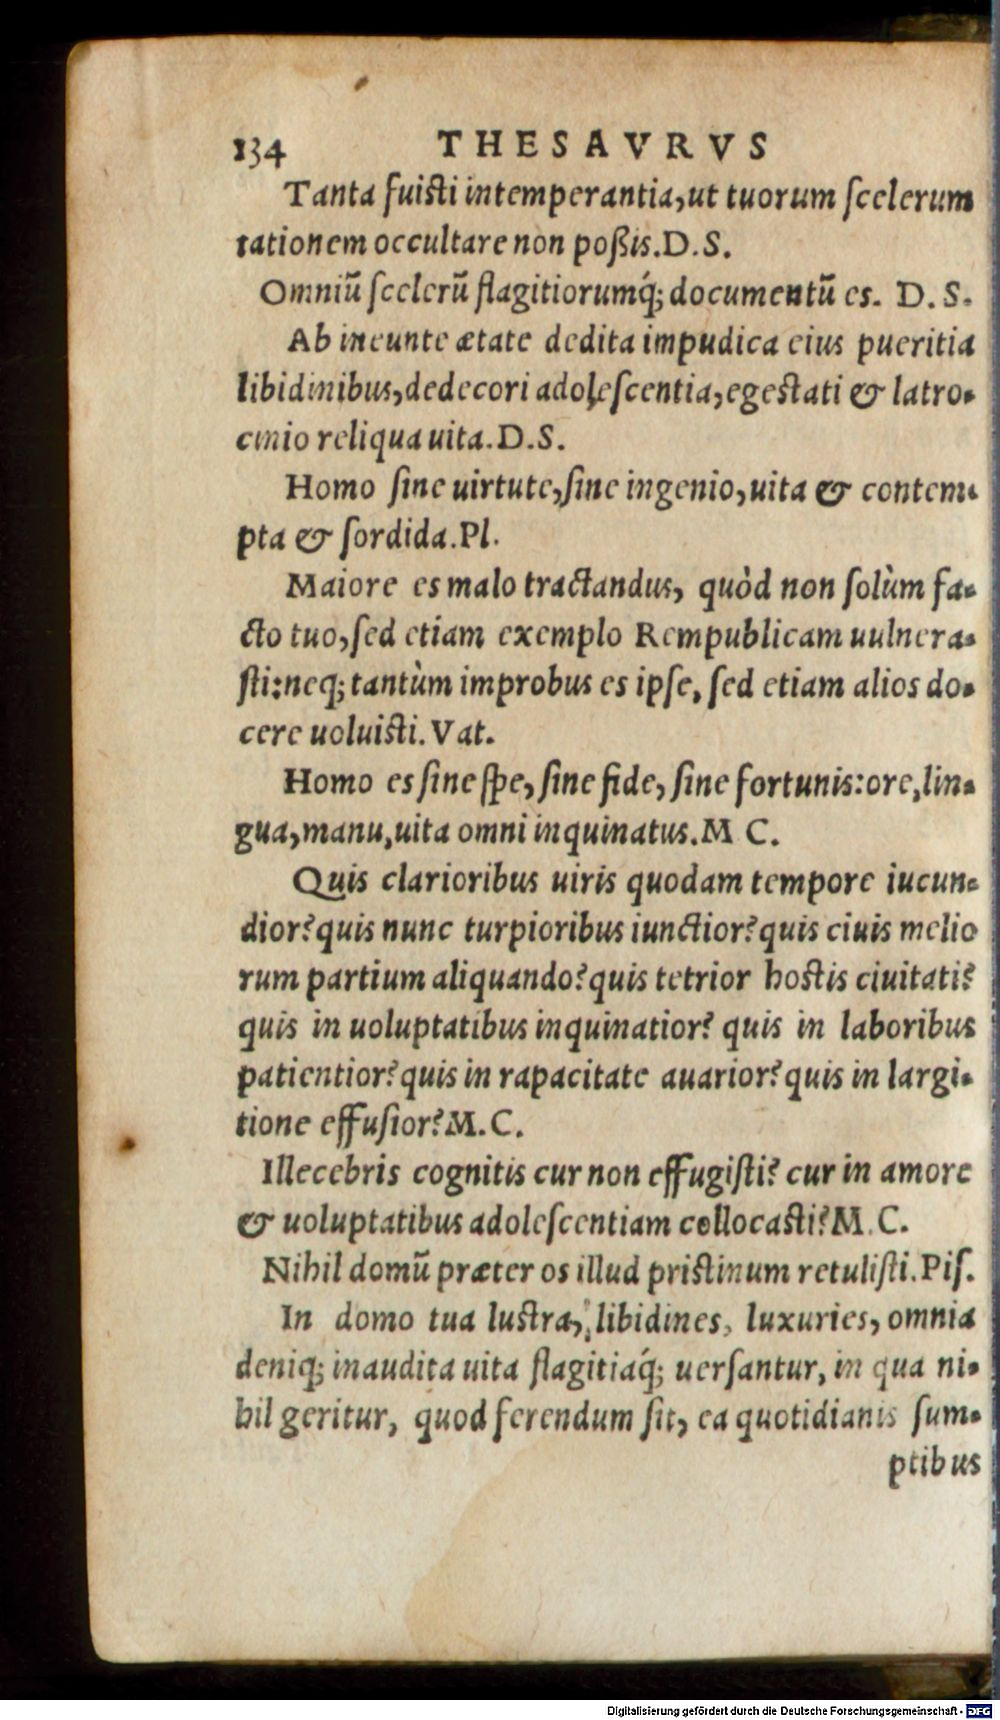 134 THESAVRVS
Tanta fuisti intemperantia, ut tuorum ſcelerum
rationem occultare non poßis. D.S.
Omniũ ſcelerũ flagitiorumq́; documentũ es. D. S.
Ab ineunte ætate dedita impudica eius pueritia
libidinibus, dedecori adoleſcentia, egestati & latro-
cinio reliqua uita. D.S.
Homo ſine uirtute, ſine ingenio, uita & contem-
pta & ſordida. Pl.
Maiore es malo tractandus, quòd non ſolùm fa-
cto tuo, ſed etiam exemplo Rempublicam uulnera-
ſti: neq; tantùm improbus es ipſe, ſed etiam alios do-
cere uoluisti. Vat.
Homo es ſine ſpe, ſine fide, ſine fortunis: ore, lin-
gua, manu, uita omni inquinatus. M C.
Quis clarioribus uiris quodam tempore iucun-
dior? quis nunc turpioribus iunctior? quis ciuis melio
rum partium aliquando? quis tetrior hostis ciuitati?
quis in uoluptatibus inquinatior? quis in laboribus
patientior? quis in rapacitate auarior? quis in largi-
tione effuſior? M. C.
Illecebris cognitis cur non effugiſti? cur in amore
& uoluptatibus adoleſcentiam collocasti? M. C.
Nihil domũ præter os illud pristinum retuliſti. Piſ.
In domo tua lustra, libidines, luxuries, omnia
deniq; inaudita uita flagitiaq́; uerſantur, in qua ni-
hil geritur, quod ferendum ſit, ea quotidianis ſum-
ptibus
Digitalisierung gefördert durch die Deutsche Forschungsgemeinschaft - DFG